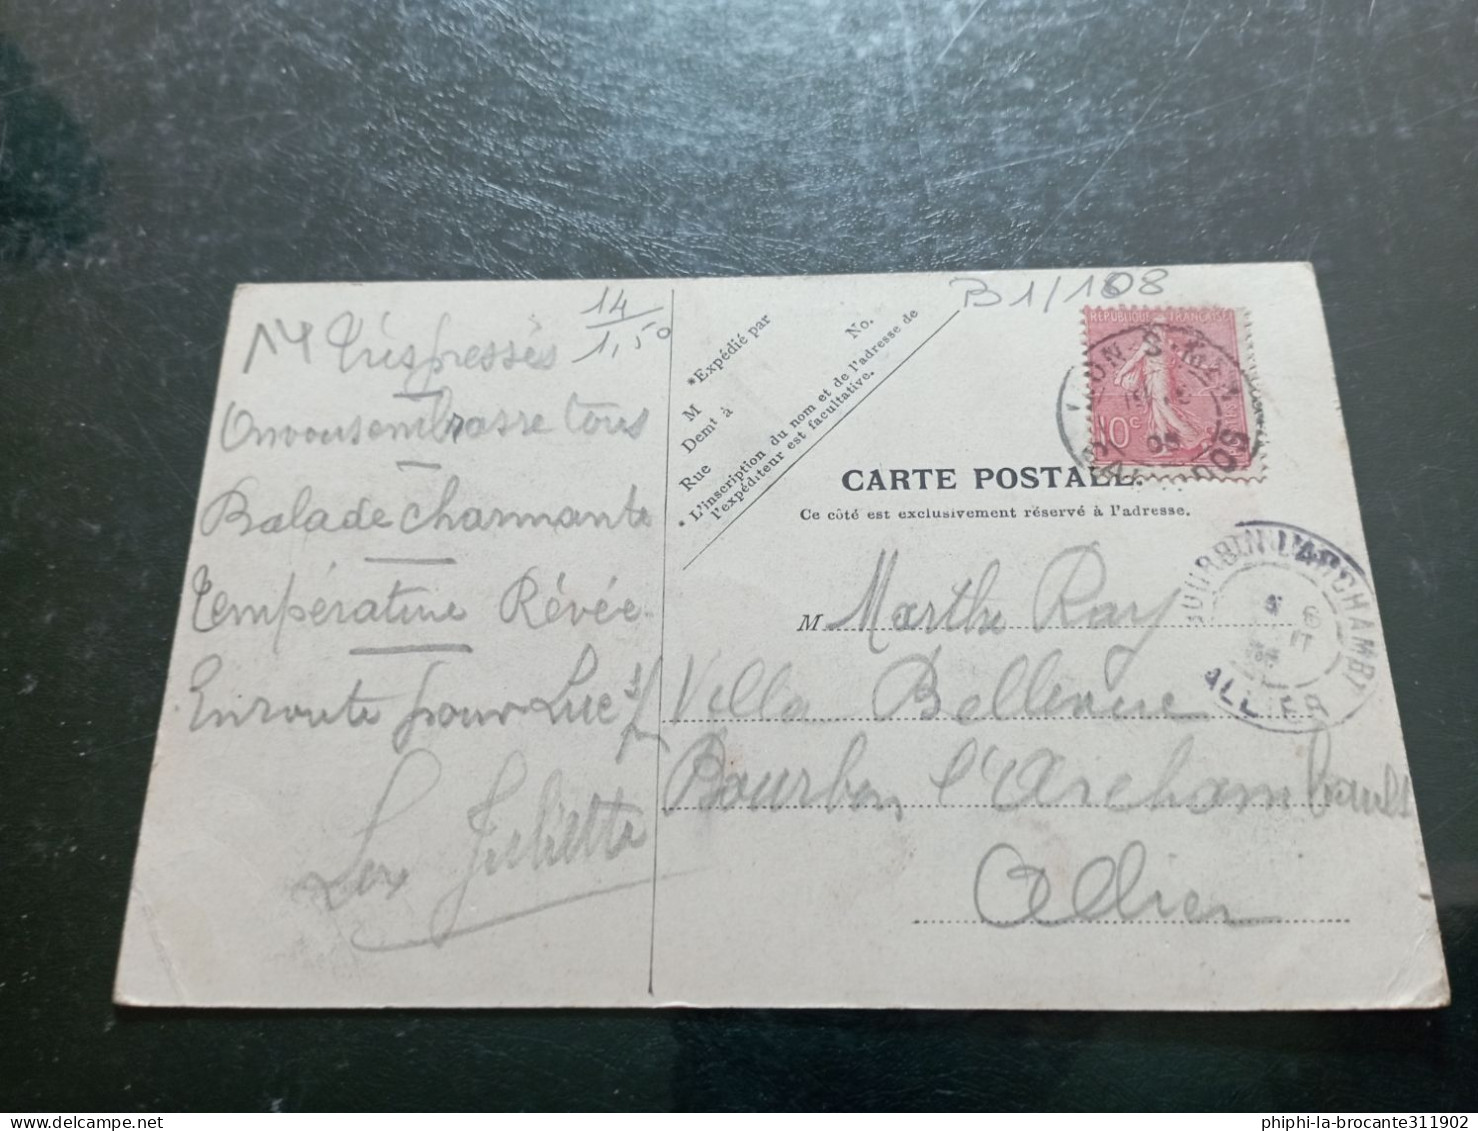 14
1,50
Très pressés
On vous embrasse tous
Balade charmante
Température Rêvée
En route pour Luc s/
Les Juliette
*Expédié par
No.
M
Demt à
Rue
* L'inscription du nom et de l'adresse de
l'expéditeur est facultative.
B1/108
REPUBLIQUE FRANÇAISE
10c
CARTE POSTALE.
Ce côté est exclusivement réservé à l'adresse.
M Marthe Ray
Villa Bellevue
Bourbon l'Archambault
Allier
BOURBON L'ARCHAMBT
ALLIER
phiphi-la-brocante311902